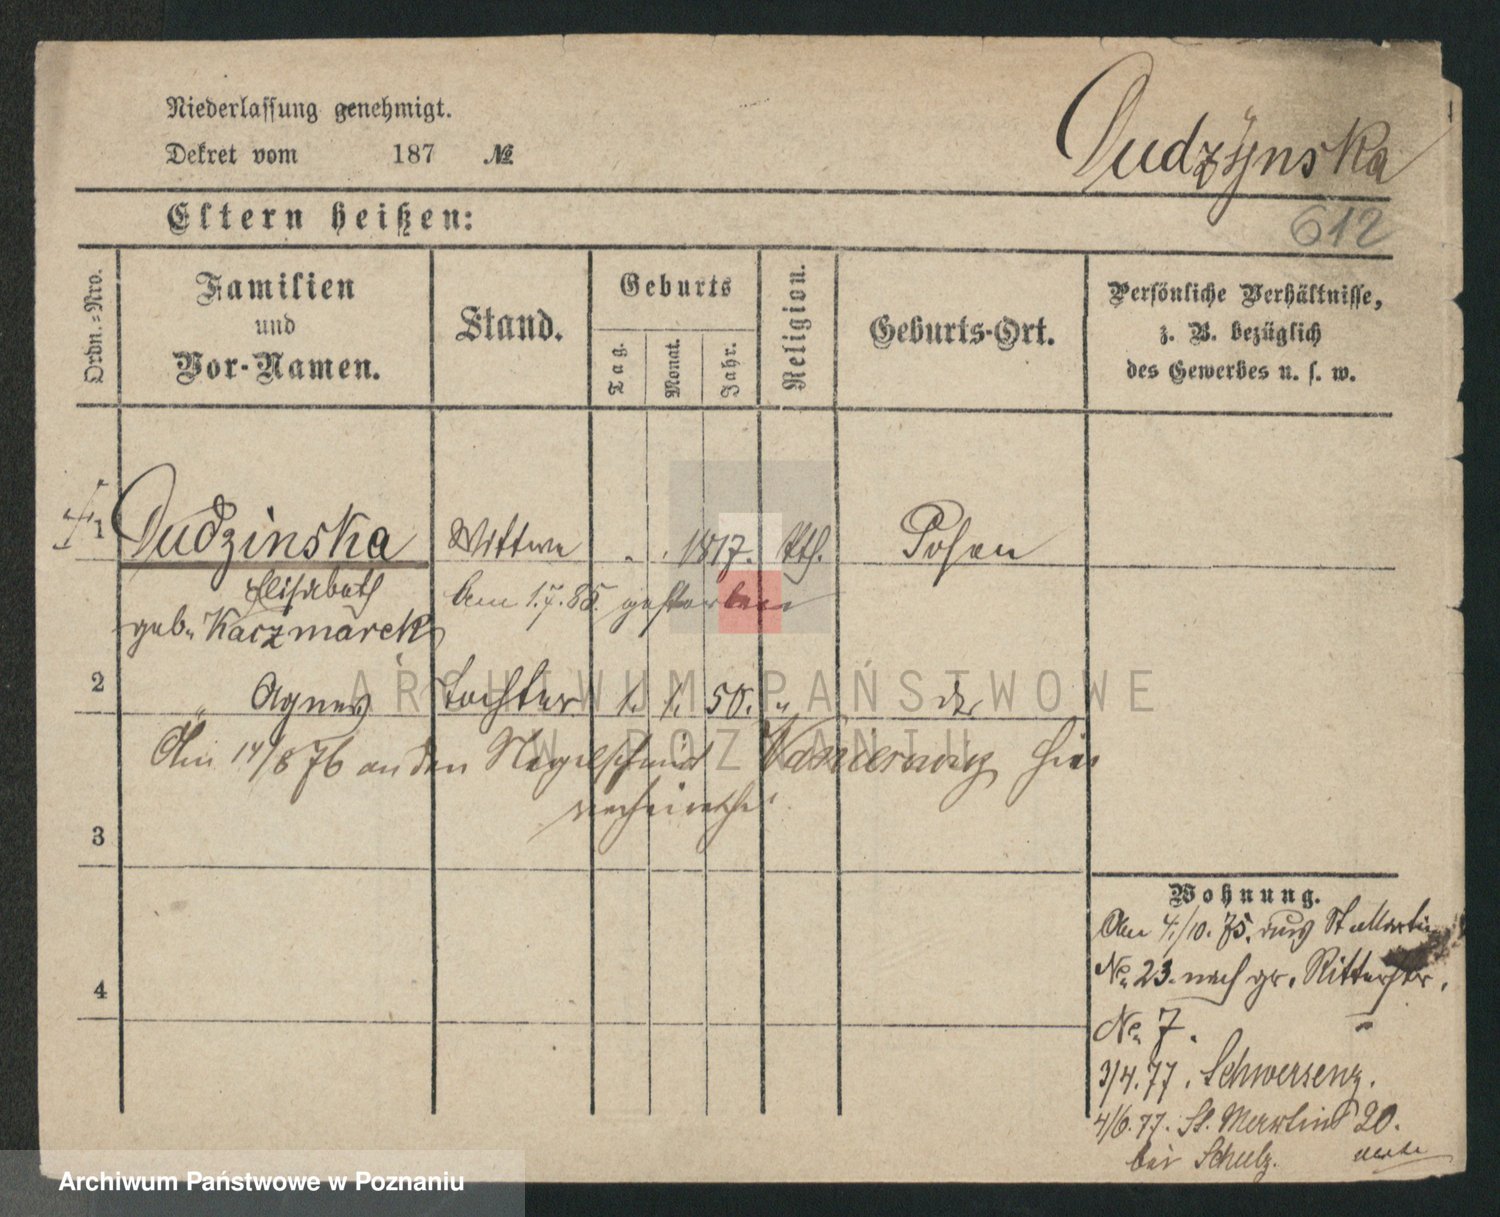 Niederlassung genehmigt.
Dekret vom 187 №
Dudzynska
612
Eltern heißen:
Ordn.-Nro.
Familien
und
Vor-Namen.
Stand.
Geburts
Tag.
Monat.
Jahr.
Religion.
Geburts-Ort.
Persönliche Verhältnisse,
z. B. bezüglich
des Gewerbes u. s. w.
1 Dudzinska Wittwe " . 1817. kth. Posen
Elisabeth
geb. Kaczmarek
Am 1.7.85. gestorben
2 " Agnes Tochter 1. 1. 50. "
Am 14/8 76 an den Nagelschmidt hier
verheirathet.
3
4
Wohnung.
Am 4./10. 75. aus St Martin
No 23. nach gr. Ritterstr.
No 7.
3/4. 77. Schwersenz.
4/6. 77. St. Martin 20.
bei Schulz.
ARCHIWUM PAŃSTWOWE
W POZNANIU
Archiwum Państwowe w Poznaniu